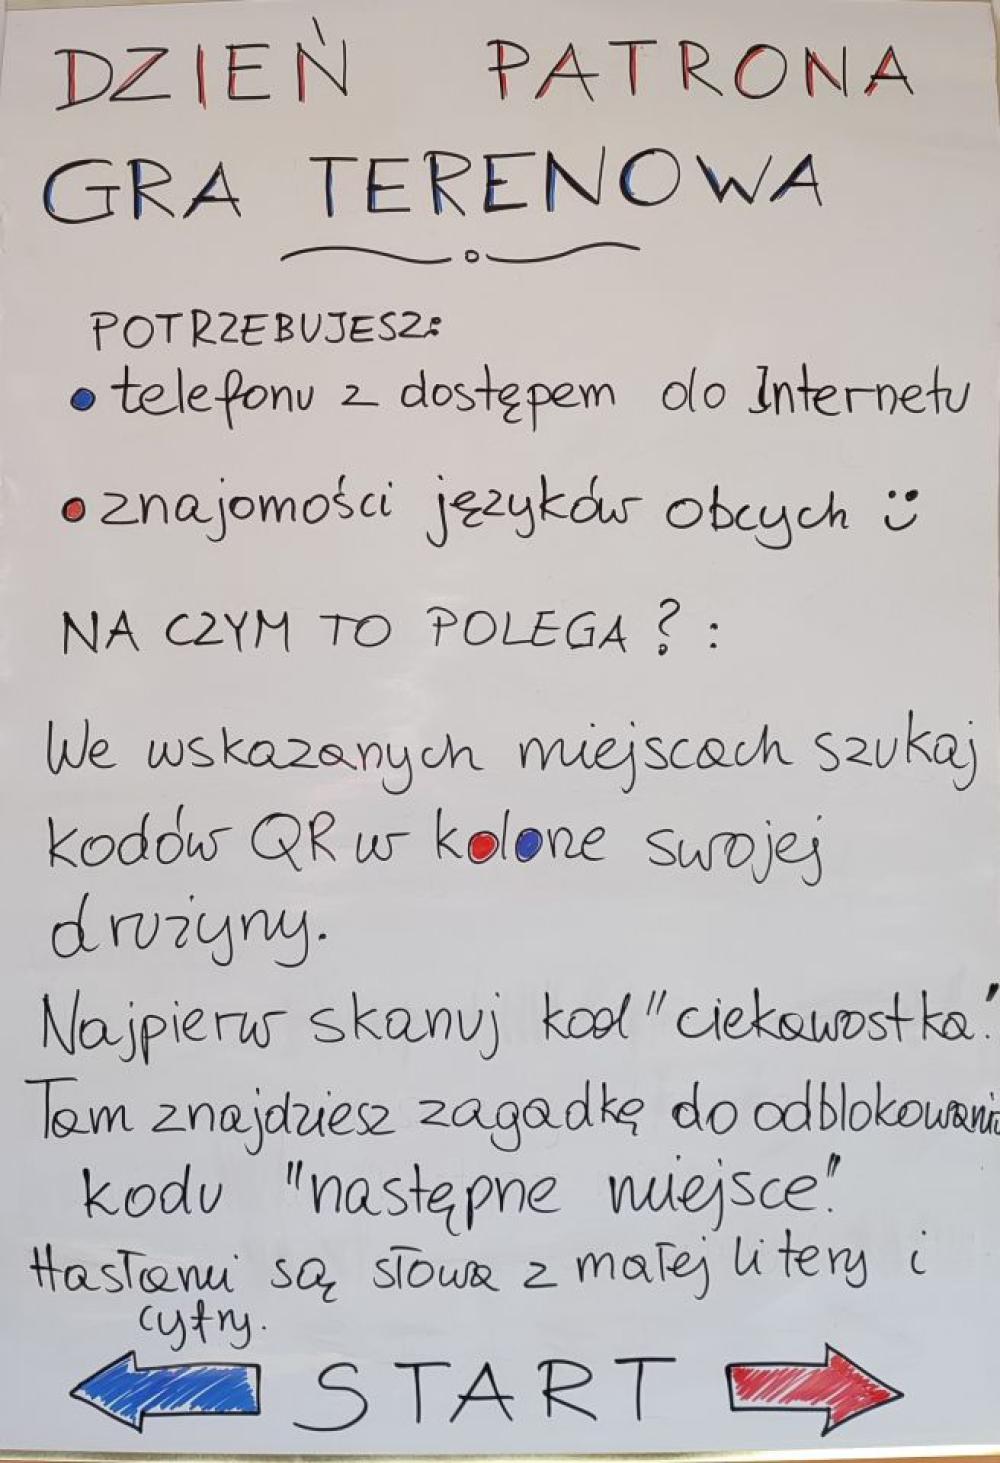 DZIEŃ PATRONA
GRA TERENOWA
POTRZEBUJESZ:
• telefonu z dostępem do Internetu
• znajomości języków obcych :)
NA CZYM TO POLEGA? :
We wskazanych miejscach szukaj
kodów QR w kolorze swojej
drużyny.
Najpierw skanuj kod "ciekawostka".
Tam znajdziesz zagadkę do odblokowania
kodu "następne miejsce".
Hasłami są słowa z małej litery i
cyfry.
START